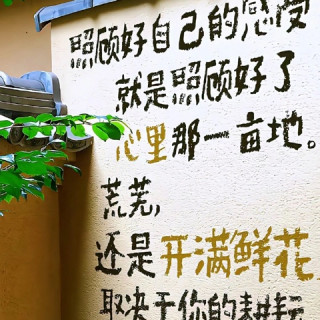 照顾好自己的感受
就是照顾好了
心里那一亩地。
荒芜,
还是开满鲜花
取决于你的耕耘